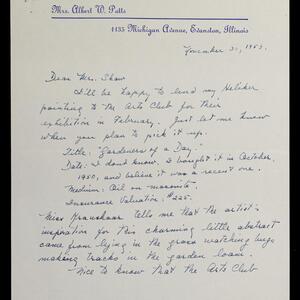 Mrs. Albert W. Potts
1135 Michigan Avenue, Evanston, Illinois
November 30, 1953.
Dear Mr. Shaw
I'll be happy to lend my Heliker
painting to the Arts Club for their
exhibition in February. Just let me know
when you plan to pick it up.
Title: "Gardeners of a Day."
Date: I don't know. I bought it in October,
1950, and believe it was a recent one.
Medium: Oil on masonite.
Insurance Valuation: $225.
Miss Kraushaar tells me that the artist's
inspiration for this charming little abstract
came from lying in the grass watching bugs
making tracks in the garden loam.
Nice to know that the Arts Club